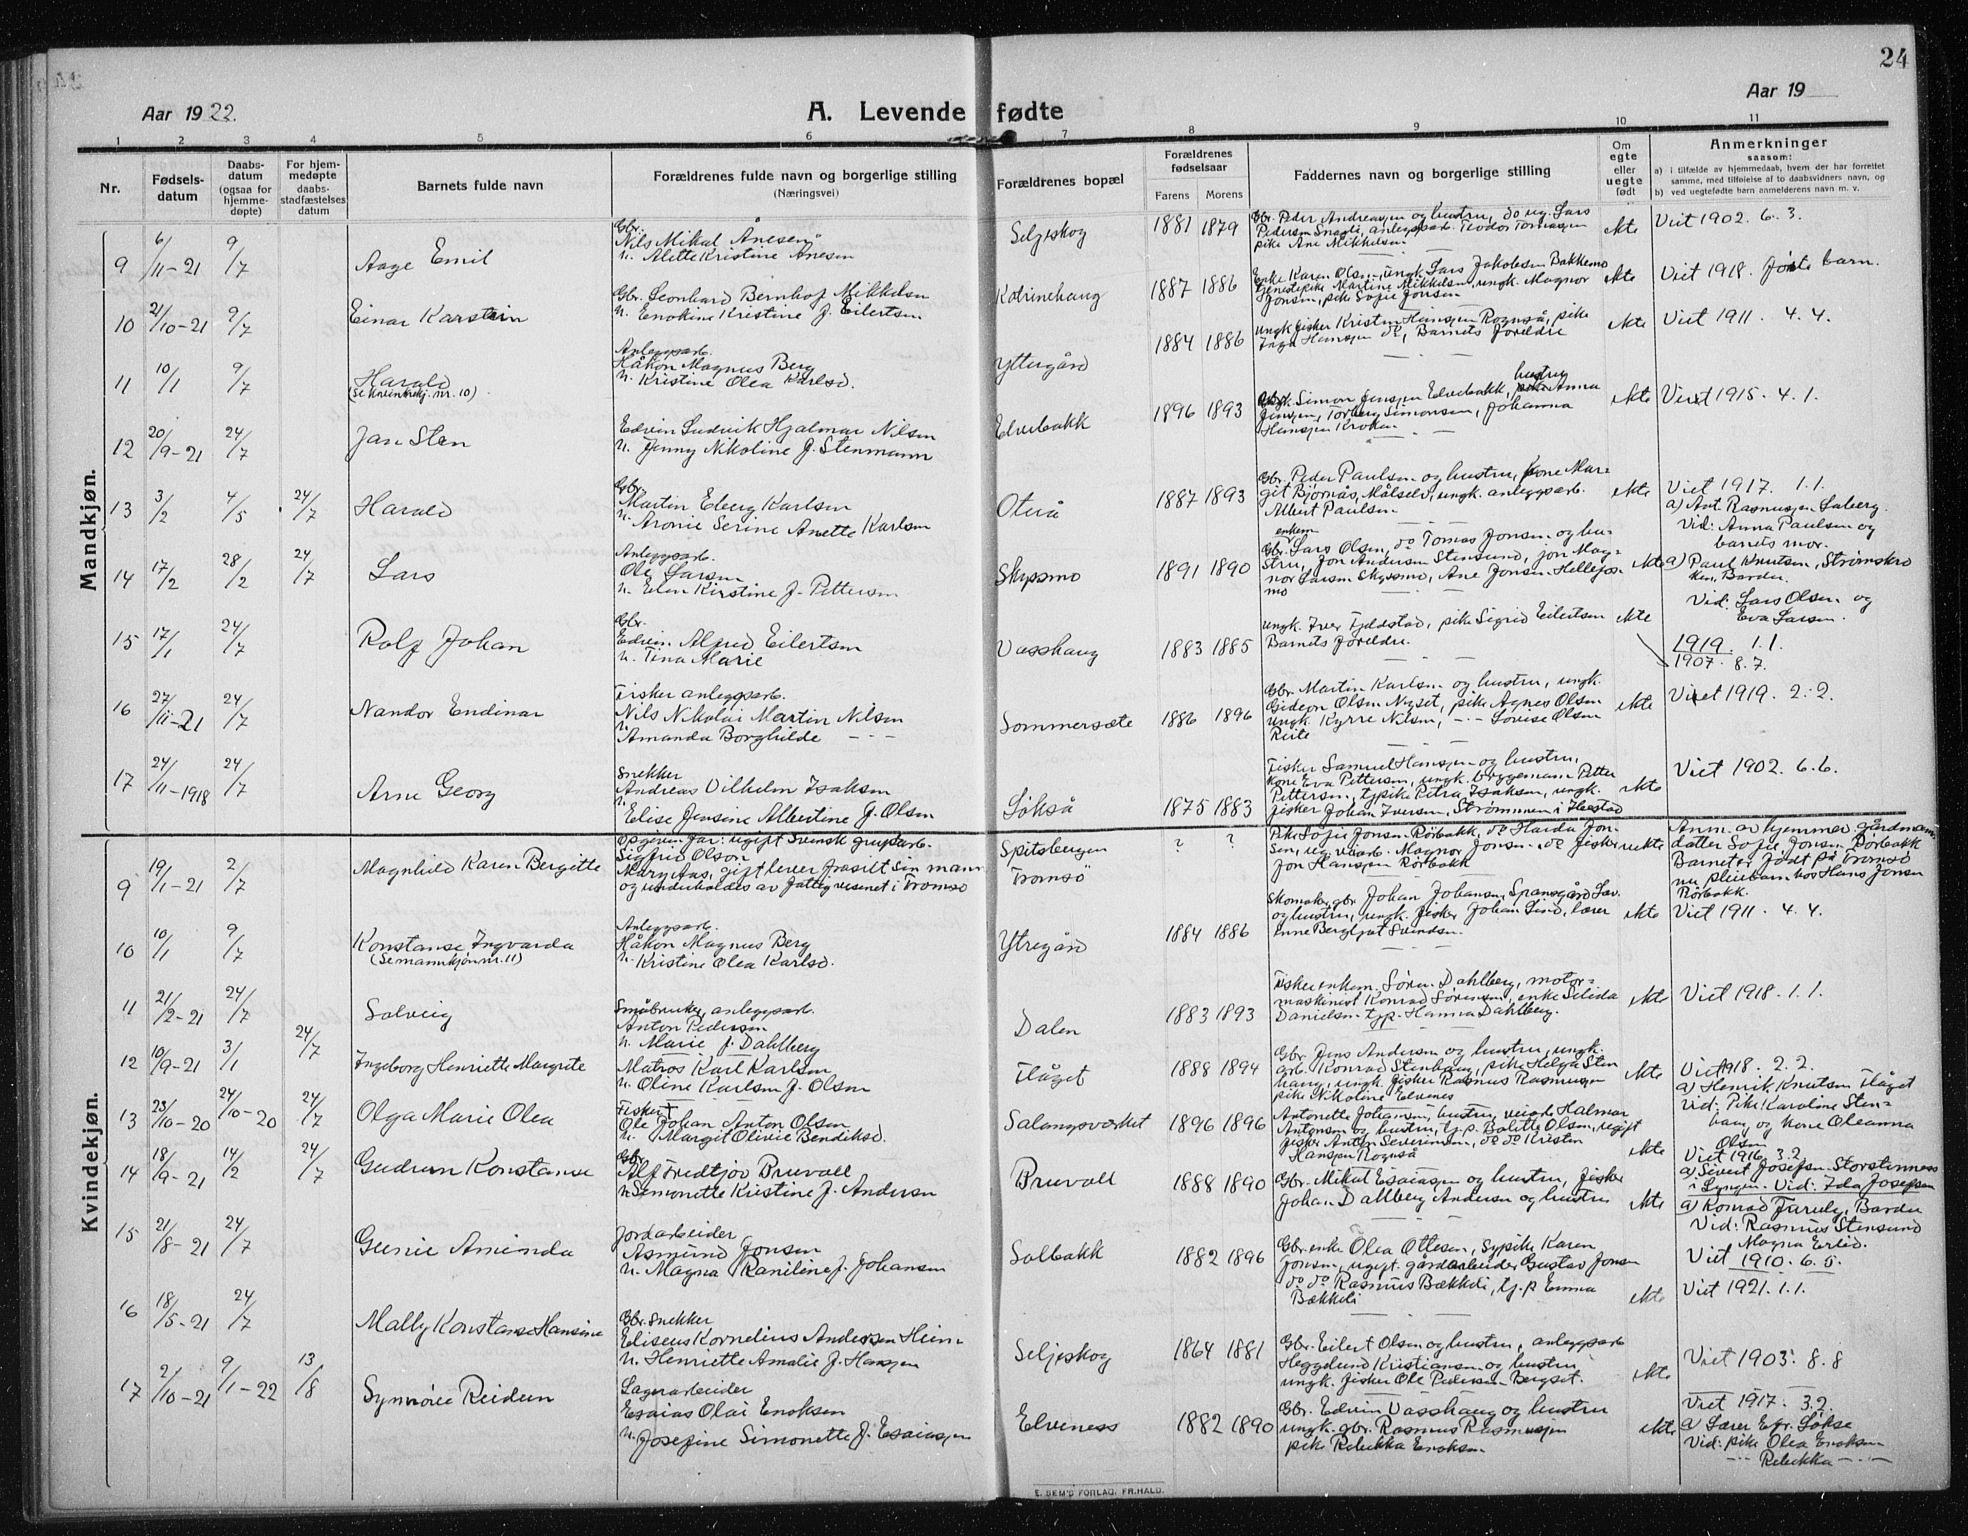 24
Aar 1922. A. Levende fødte Aar 19
1 2 3 4 5 6 7 8 9 10 11
Nr.
Fødsels-
datum
Daabs-
datum
(ogsaa for
hjemme-
døpte)
For hjem-
medøpte
daabs-
stadfæstelses
datum
Barnets fulde navn
Forældrenes fulde navn og borgerlige stilling
(Næringsvei)
Forældrenes bopæl
Forældrenes
fødselsaar
Farens Morens
Faddernes navn og borgerlige stilling
Om
egte
eller
uegte
født
Anmerkninger
saasom:
a) i tilfælde av hjemmedaab, hvem der har forrettet
samme, med tilføielse af to daabsvidners navn, og
b) ved uegtefødte barn anmelderens navn m. v.
Mandkjøn.
9 6/11-21 9/7 Aage Emil
Gbr.
Nils Mikal Ånesen
h. Alette Kristine Ånesen
Seljeskog 1881 1879
Gbr. Peder Andreassen og hustru, do ug. Lars
Pedersen, anleggsarb. Teodor Tomassen
pike Ane Mikkelsen
ekte Viet 1902. 6. 3.
10 21/10-21 9/7 Einar Karstein
Gbr. Leonhard Bernhof Mikkelsen
h. Enokine Kristine f. Eilertsen
Kobrinehaug 1887 1886
Enke Karen Olsen, ungk. Lars Jakobsen Bakkemo
tjenestepike Martine Mikkelsen, ungk. Magnor
Jonsen, pike Sofie Jonsen
ekte Viet 1918. første barn.
11 10/1 9/7 Harald
(Se kvinnekj. nr. 10)
Anleggsarb.
Håkon Magnus Berg
h. Kristine Olea Karlsd.
Yttergård 1884 1886
ungk. fisker Kristen Hansen Rognså, pike
Inga Hansen do, Barnets foreldre
ekte Viet 1911. 4. 4.
12 20/9-21 24/7 Jan Sten
Edvin Ludvik Hjalmar Nilsen
h. Jenny Nikoline f. Stenmann
Elvebakk 1896 1893
Simon Jensen Elvebakk, hustru Anna
Jensen, Torberg Simonsen, Johanna
Hansen Kroken
ekte Viet 1915. 4. 1.
13 3/2 4/5 24/7 Harald
Gbr.
Martin Eberg Karlsen
h. Aronie Serine Anette Karlsen
Oterå 1887 1893
Gbr. Peder Paulsen og hustru, kone Mar-
git Bjørnås, Målselv, ungk. anleggsarb.
Albert Paulsen
ekte Viet 1917. 1. 1.
a) Ant. Rasmussen Soberg.
Vid: Anna Paulsen og
barnets mor.
14 17/2 28/2 24/7 Lars
Anleggsarb.
Ole Larsen
h. Elen Kirstine f. Pettersen
Skyssmo 1891 1890
enkem.
Gbr. Lars Olsen, do Tomas Jonsen og hu-
stru, Jon Andersen Stensund, jon Mag-
nor Larsen Skyssmo, Ane Jonsen Hellefos-
mo
ekte a) Paul Knutsen, Strømskro
ken, Bardu.
Vid: Lars Olsen og
Eva Larsen.
15 17/1 24/7 Rolf Johan
Gbr.
Edvin Alfred Eilertsen
h. Tina Marie
Vasshaug 1883 1885
ungk. Iver Fjeldstad, pike Sigrid Eilertsen
Barnets foreldre.
ekte 1919. 1. 1.
1907. 8. 7.
16 27/11-21 24/7 Nandor Endinar
Fisker anleggsarb.
Nils Nikolai Martin Nilsen
h. Amanda Borghilde — - —
Sommersæte 1886 1896
Gbr. Martin Karlsen og hustru, ungk.
Gideon Olsen Nyset, pike Agnes Olsen
ungk. Kyrre Nilsen, - - - Lovise Olsen
Reite
ekte Viet 1919. 2. 2.
17 24/11-1918 24/7 Arne Georg
Snekker
Andreas Vilhelm Isaksen
h.
Elise Jensine Albertine f. Olsen
Løkså 1875 1883
Fisker Samuel Hansen og hustru,
kone Eva Pettersen, ungk. bryggemann Petter
Pettersen, tj.pike Petra Isaksen, ungk.
fisker Johan Iversen, Strømmen i
ekte Viet 1902. 6. 6.
Kvindekjøn.
9 19/1-21 2/7 Magnhild Karen Bergitte
Opgiven far: ugift Svensk grusarb.
Sigfred Olson
Mary Aas, gift lever fraskilt sin mann
og underholdes av fattigvesenet i Tromsø
Spitsbergen
Tromsø
? ?
Pike Sofie Jonsen Rørbakk, do Harda Jon-
sen, ug. veiarb. Magnor Jonsen, do fisker
Jon Hansen Rørbakk
uekte Anm. av hjemmev. gårdmann
datter Sofie Jonsen Rørbakk
Barnet er født på Tromsø
nu pleiebarn hos Hans Jonsen
Rørbakk.
10 10/1 9/7 Konstanse Ingvarda
(Se mannkjøn nr. 11)
Anleggsarb.
Håkon Magnus Berg
h. Kristine Olea Karlsd.
Ytregård 1884 1886
Skomaker, gbr Johan Johansen, Spansgård Lav.
og hustru, ungk. fisker Johan Lind, lærer
inne Bergljot Svendsen.
ekte Viet 1911. 4. 4.
11 21/2-21 24/7 Solveig
Småbruker, anleggsarb.
Anton Pedersen
h. Marie f. Dahlberg
Dalen 1883 1893
Fisker enkem. Søren Dahlberg, motor-
maskinist Konrad Sørensen, enke Selida
Danielsen. tjp. Hanna Dahlberg.
ekte Viet 1918. 1. 1.
12 10/9-21 3/1 24/7 Ingeborg Henriette Margrete
Matros Karl Karlsen
h. Oline Karlsen f. Olsen
Flåget 1888 1894
Gbr. Jens Andersen og hustru, ungk.
arb. Konrad Stenhaug, pike Helga Sten
haug, ungk. fisker Rasmus Rasmussen
pike Nikoline Elvenes
ekte Viet 1918. 2. 2.
a) Henrik Knutsen Flåget
Vid: Pike Karoline Sten-
haug, og kone Oleanna
Olsen
13 23/10-20 24/10-20 24/7 Olga Marie Olea
Fisker
Ole Johan Anton Olsen
h. Margit Olivie Bendiksd.
Salangsverket 1896 1896
Antonette Johansen, hustru, veiarb Halmar
Antonsen og hustru, tj.p. Bolette Olsen, ugift
fisker Anton Severinsen, do do Kristen
Hansen Rognså
ekte Viet 1916. 3. 2.
a) Sivert Josefsen Storstennes
i Lyngen. Vid: Ida Josefsen
14 18/9-21 14/2 24/7 Gudrun Konstanse
Gbr
Alf Fredtjov Bruvoll
h. Simonette Kristine f. Andersen
Bruvoll 1888 1890
Gbr. Mikal Esaiassen og hustru, fisker
Johan Dahlberg Andersen og hustru
ekte a) Konrad Furuly, Bardu
Vid: Rasmus Stensund
Magna Erlid.
Viet 1910. 6. 5.
15 21/8-21 24/7 Gunie Aminda
Jordarbeider
Asmund Jonsen
h. Magna Raniline f. Johansen
Solbakk 1882 1896
Gbr. enke Olea Ottesen, Sypike Karen
Jonsen, ugift gårdarbeider Gustav Jonsen
do do Rasmus Bækkeli, tj. p Emma
Bækkeli
ekte Viet 1921. 1. 1.
16 18/5-21 24/7 Mally Konstanse Hansine
Gbr. snekker
Eliseus Kornelius Andersen Heim
h. Henriette Amalie f. Hansen
Seljeskog 1864 1881
Gbr. Eilert Olsen og hustru, anleggsarb
Heggelund Kristiansen og hustru
ungk. fisker Ole Pedersen Bergset.
ekte Viet 1903. 8. 8
17 2/10-21 9/1-22 13/8 Synnöve Reidun
Lagerarbeider
Esaias Olai Enoksen
h. Josefine Simonette f. Esaiassen
Elveness 1882 1890
Gbr. Edvin Vasshaug og hustru
ungk. gbr. Rasmus Rasmussen
pike Rebekka Enoksen
ekte Viet 1917. 3. 2.
a) Lærer Efr. Løkse
Vid: pike Olea Enoksen
— - — Rebekka — - —
E. SEM'S FORLAG, FR.HALD.